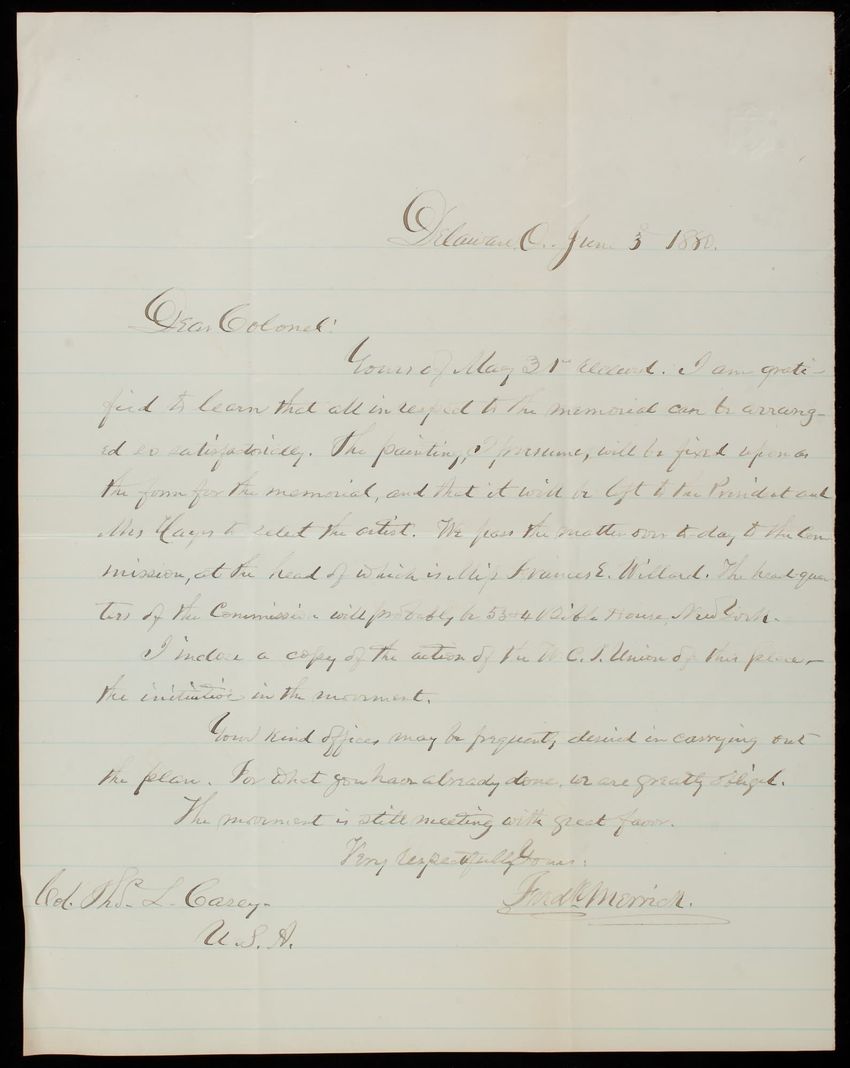 Delaware, O. June 3 1880.
Dear Colonel:
Yours of May 31st received. I am grati-
fied to learn that all in respect to the memorial can be arrang-
ed so satisfactorily. The painting, I presume, will be fixed upon as
the form for the memorial, and that it will be left to the President and
Mrs Hayes to select the artist. We pass the matter over to-day to the Com
mission, at the head of which is Miss Frances E. Willard. The head-quar
ters of the Commission will probably be Bible House, New York.
I inclose a copy of the action of the W. C. T. Union of this place—
the initiative in the movement.
Your kind offices may be frequently desired in carrying out
the plan. For what you have already done, we are greatly obliged.
The movement is still meeting with great favor.
Very Respectfully Yours:
Fredk Merrick.
Col. Thos. L. Casey.
U. S. A.